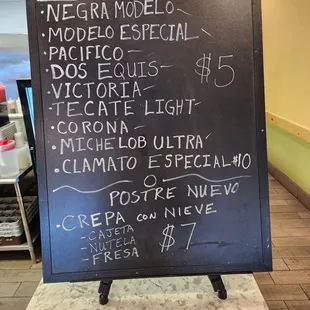 NEGRA MODELO-
·MODELO ESPECIAL-
·PACIFICO-
·DOS EQUIS-
$5
·VICTORIA-
·TECATE LIGHT-
·CORONA-
·MICHELOB ULTRA-
·CLAMATO ESPECIAL $10
POSTRE NUEVO
·CREPA CON NIEVE
-CAJETA
-NUTELA
-FRESA
$7